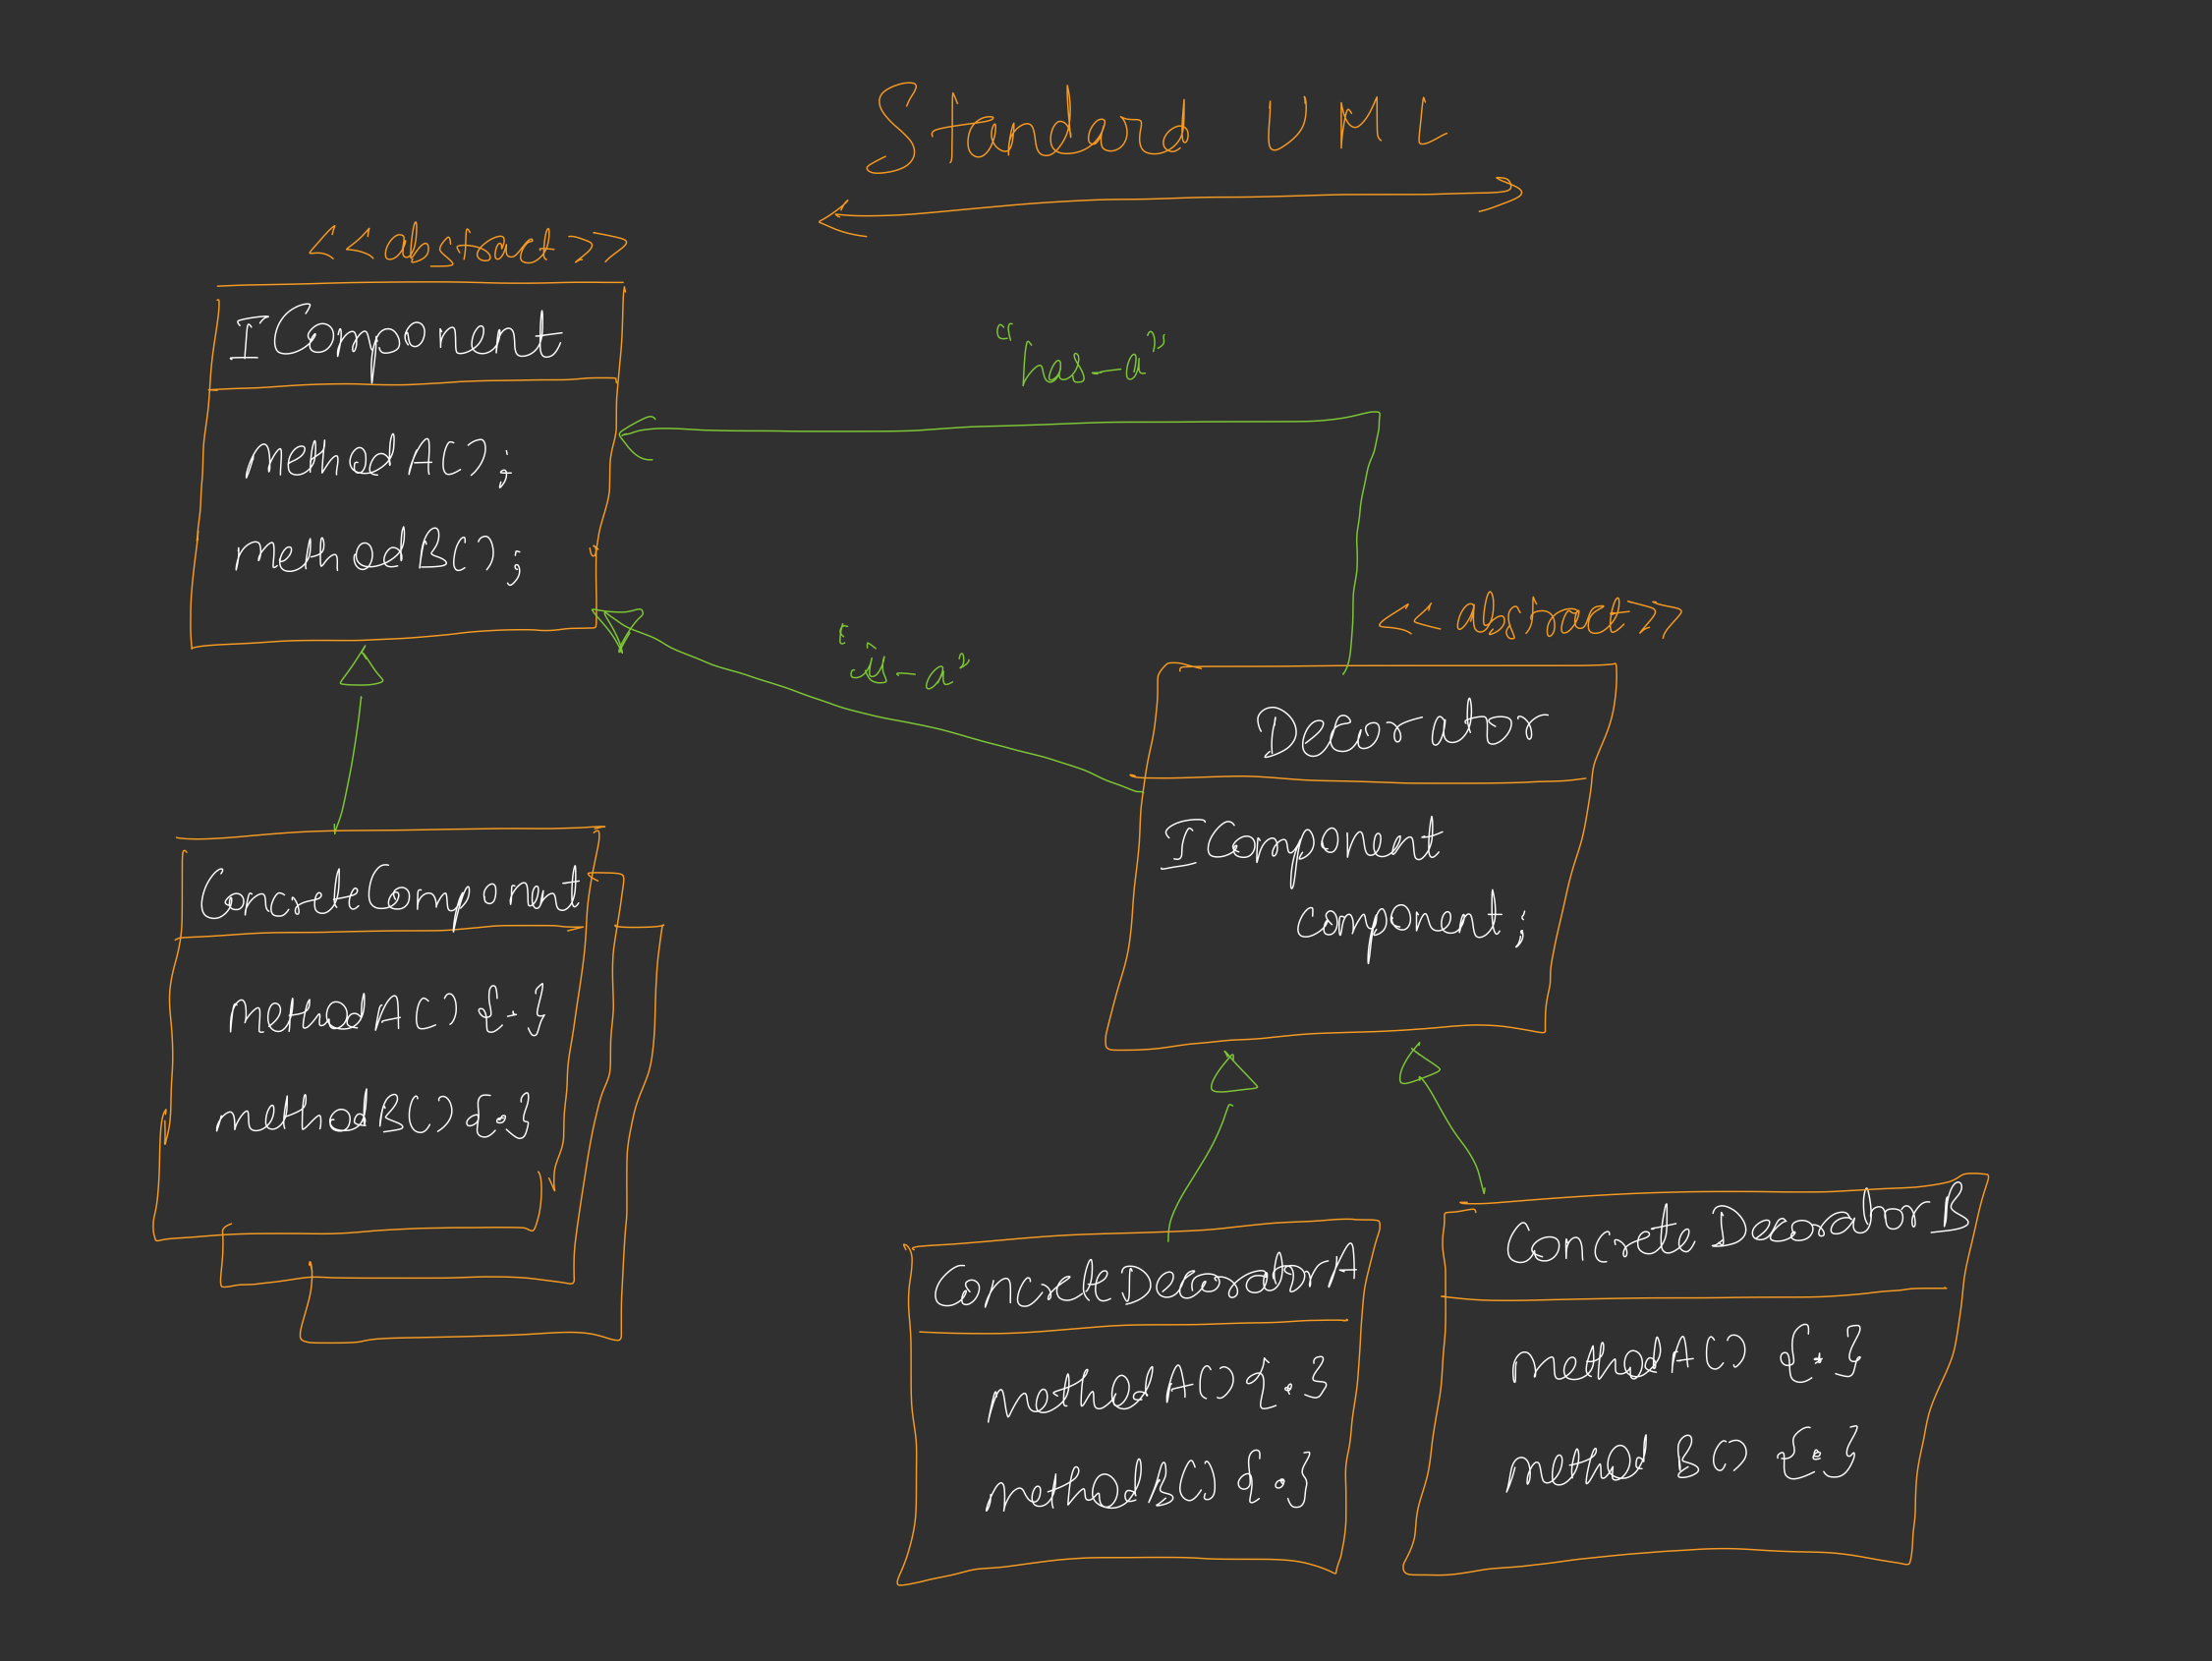 Standard UML
<<abstract>>
IComponent
methodA();
methodB();
"has-a"
"is-a"
<<abstract>>
Decorator
IComponent
component;
ConcreteComponent
methodA() {.}
methodB() {.}
ConcreteDecoratorA
methodA() {.}
methodB() {.}
ConcreteDecoratorB
methodA() {.}
methodB() {.}